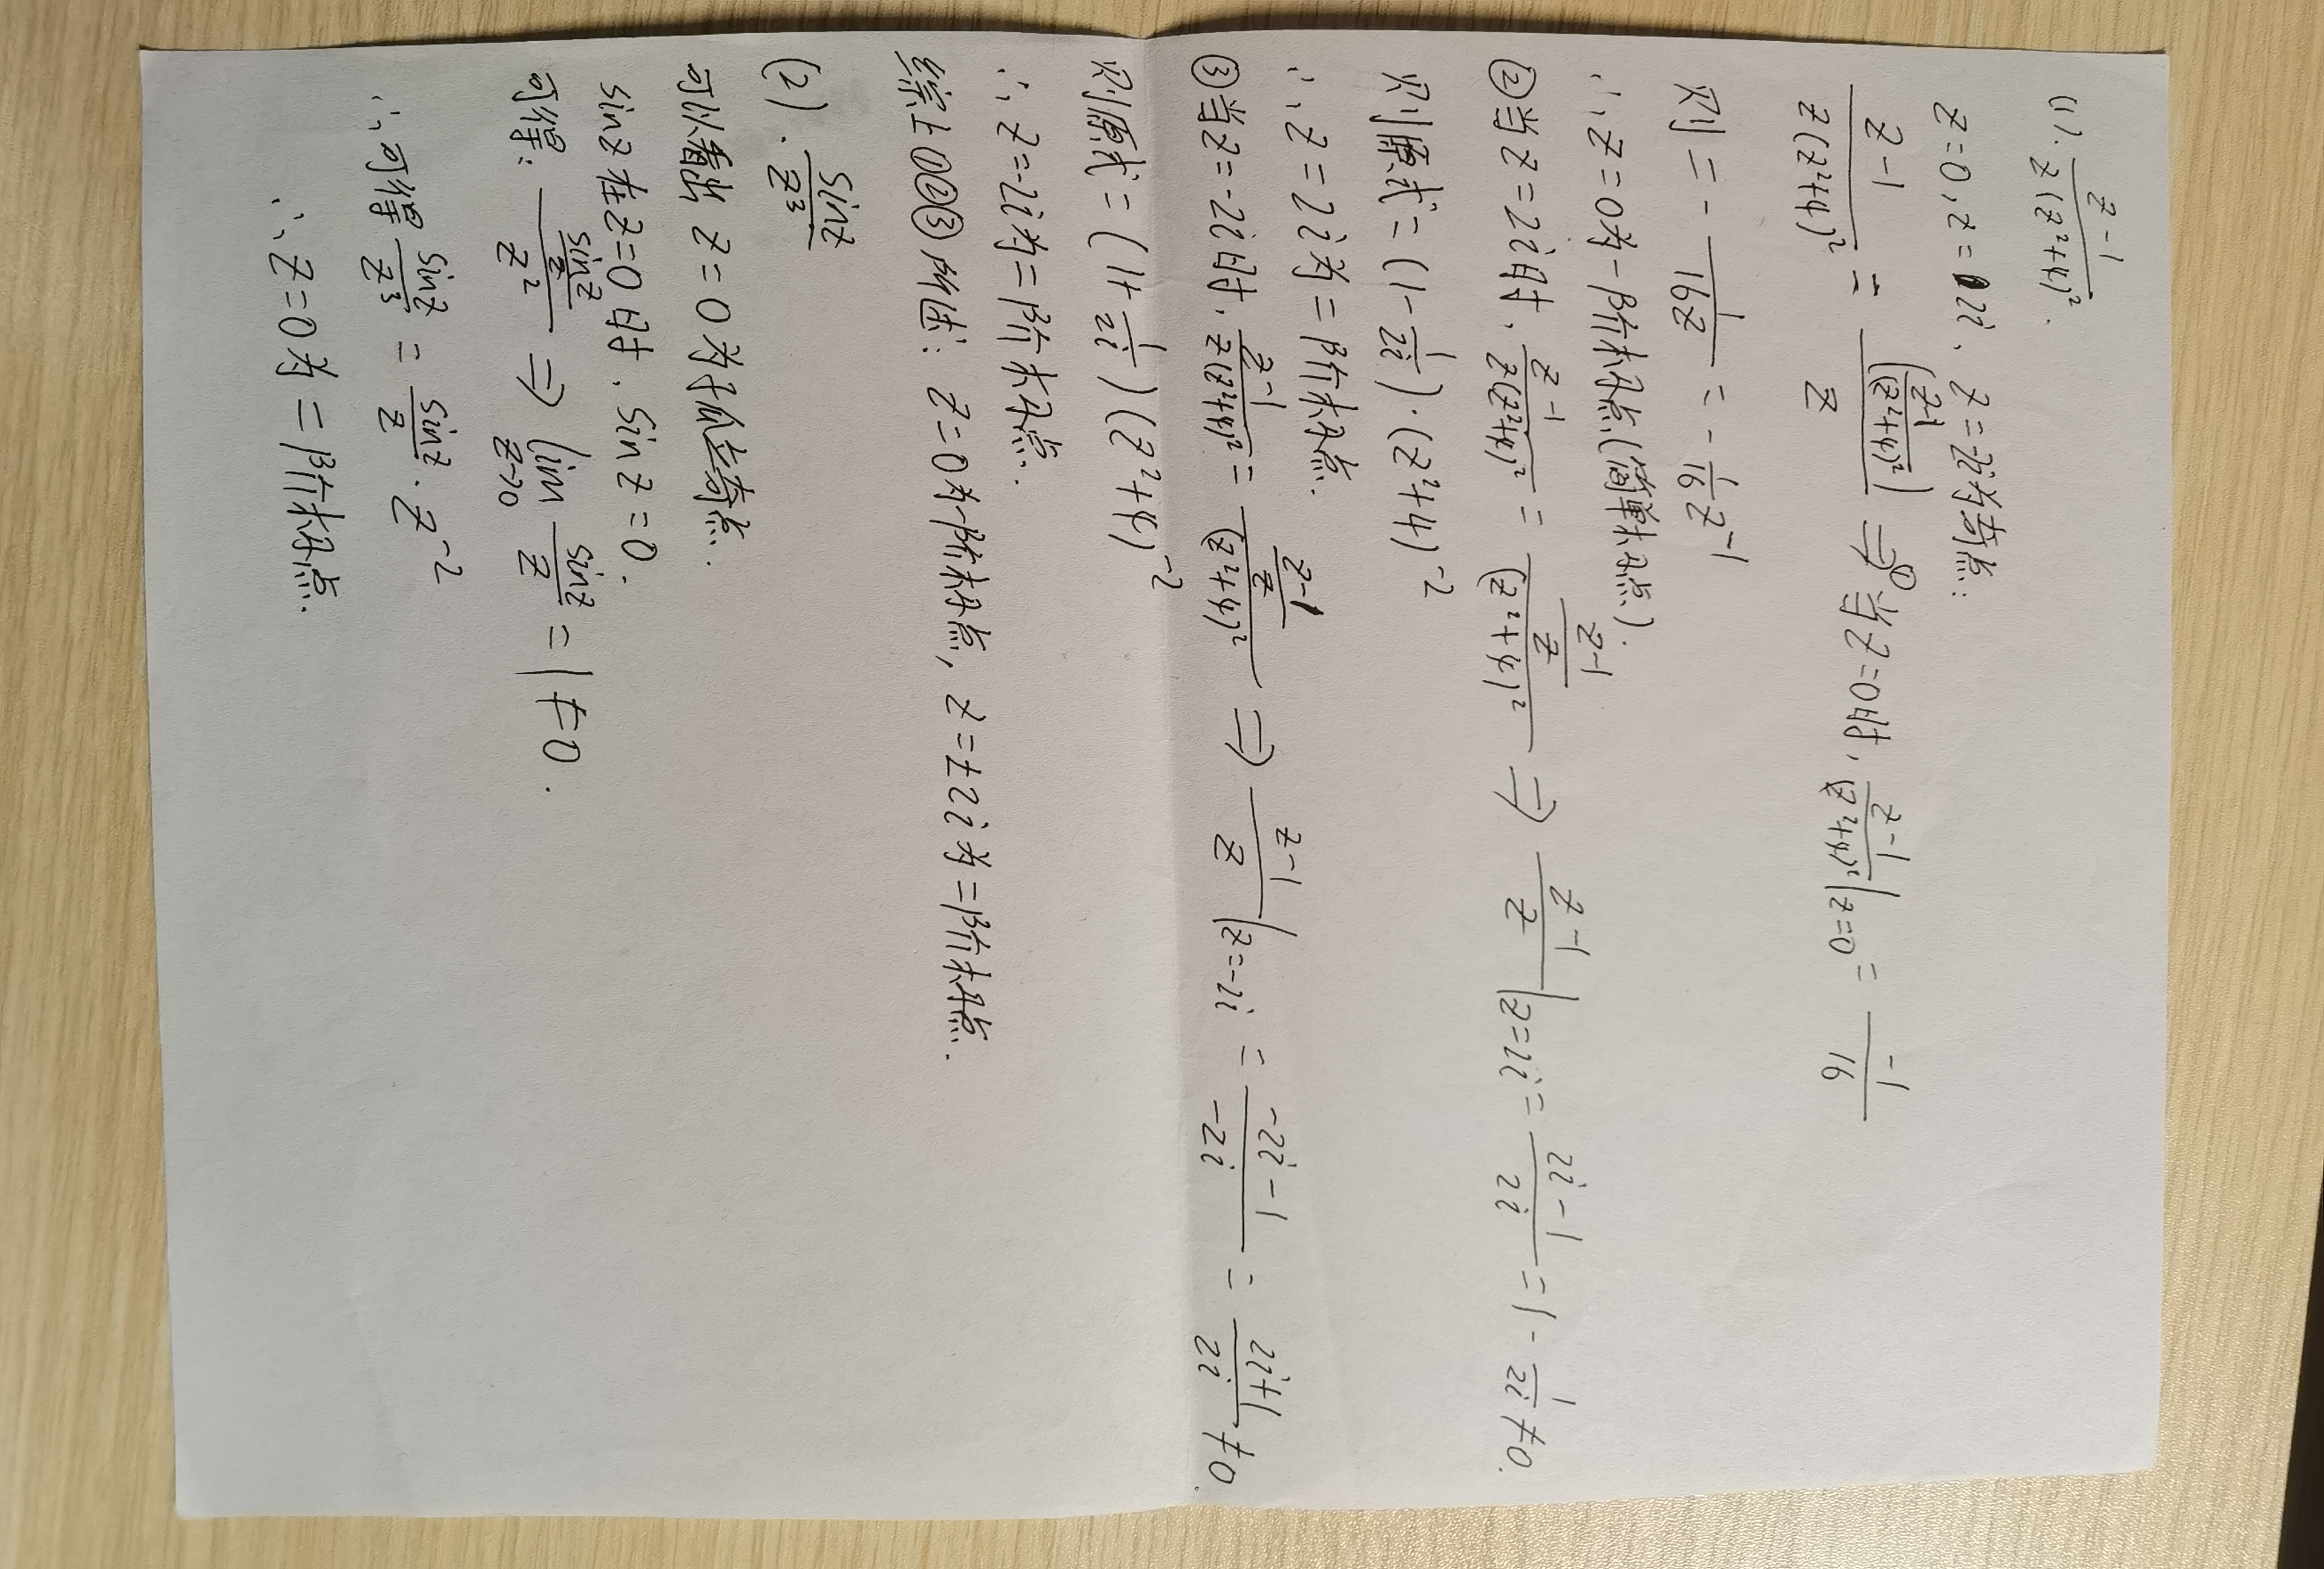 (1). \frac{z-1}{z(z²+4)²}.
z=0, z=2i、z=-2i为奇点:
\frac{z-1}{z(z²+4)²} = \frac{(\frac{z-1}{(z²+4)²})}{z} ⇒ ①当z=0时, \frac{z-1}{(z²+4)²}|z=0 = \frac{-1}{16}
则 = -\frac{1}{16z} = -\frac{1}{16}z⁻¹
∴ z=0为一阶极点(简单极点).
②当z=2i时, \frac{z-1}{z(z²+4)²} = \frac{\frac{z-1}{z}}{(z²+4)²} ⇒ \frac{z-1}{z}|z=2i = \frac{2i-1}{2i} = 1-\frac{1}{2i}≠0.
则原式=(1-\frac{1}{2i})·(z²+4)⁻²
∴ z=2i为二阶极点.
③当z=-2i时, \frac{z-1}{z(z²+4)²} = \frac{\frac{z-1}{z}}{(z²+4)²} ⇒ \frac{z-1}{z}|z=-2i = \frac{-2i-1}{-2i} = \frac{2i+1}{2i}≠0.
则原式=(1+\frac{1}{2i})(z²+4)⁻²
∴ z=-2i为二阶极点.
综上①②③所述: z=0为一阶极点, z=±2i为二阶极点.
(2). \frac{sinz}{z³}
可以看出 z=0为孤立奇点.
sinz在z=0时, sinz=0.
可得: \frac{\frac{sinz}{z}}{z²} ⇒ lim_{z→0} \frac{sinz}{z} = 1≠0.
∴可得 \frac{sinz}{z³} = \frac{sinz}{z}·z⁻²
∴ z=0为二阶极点.